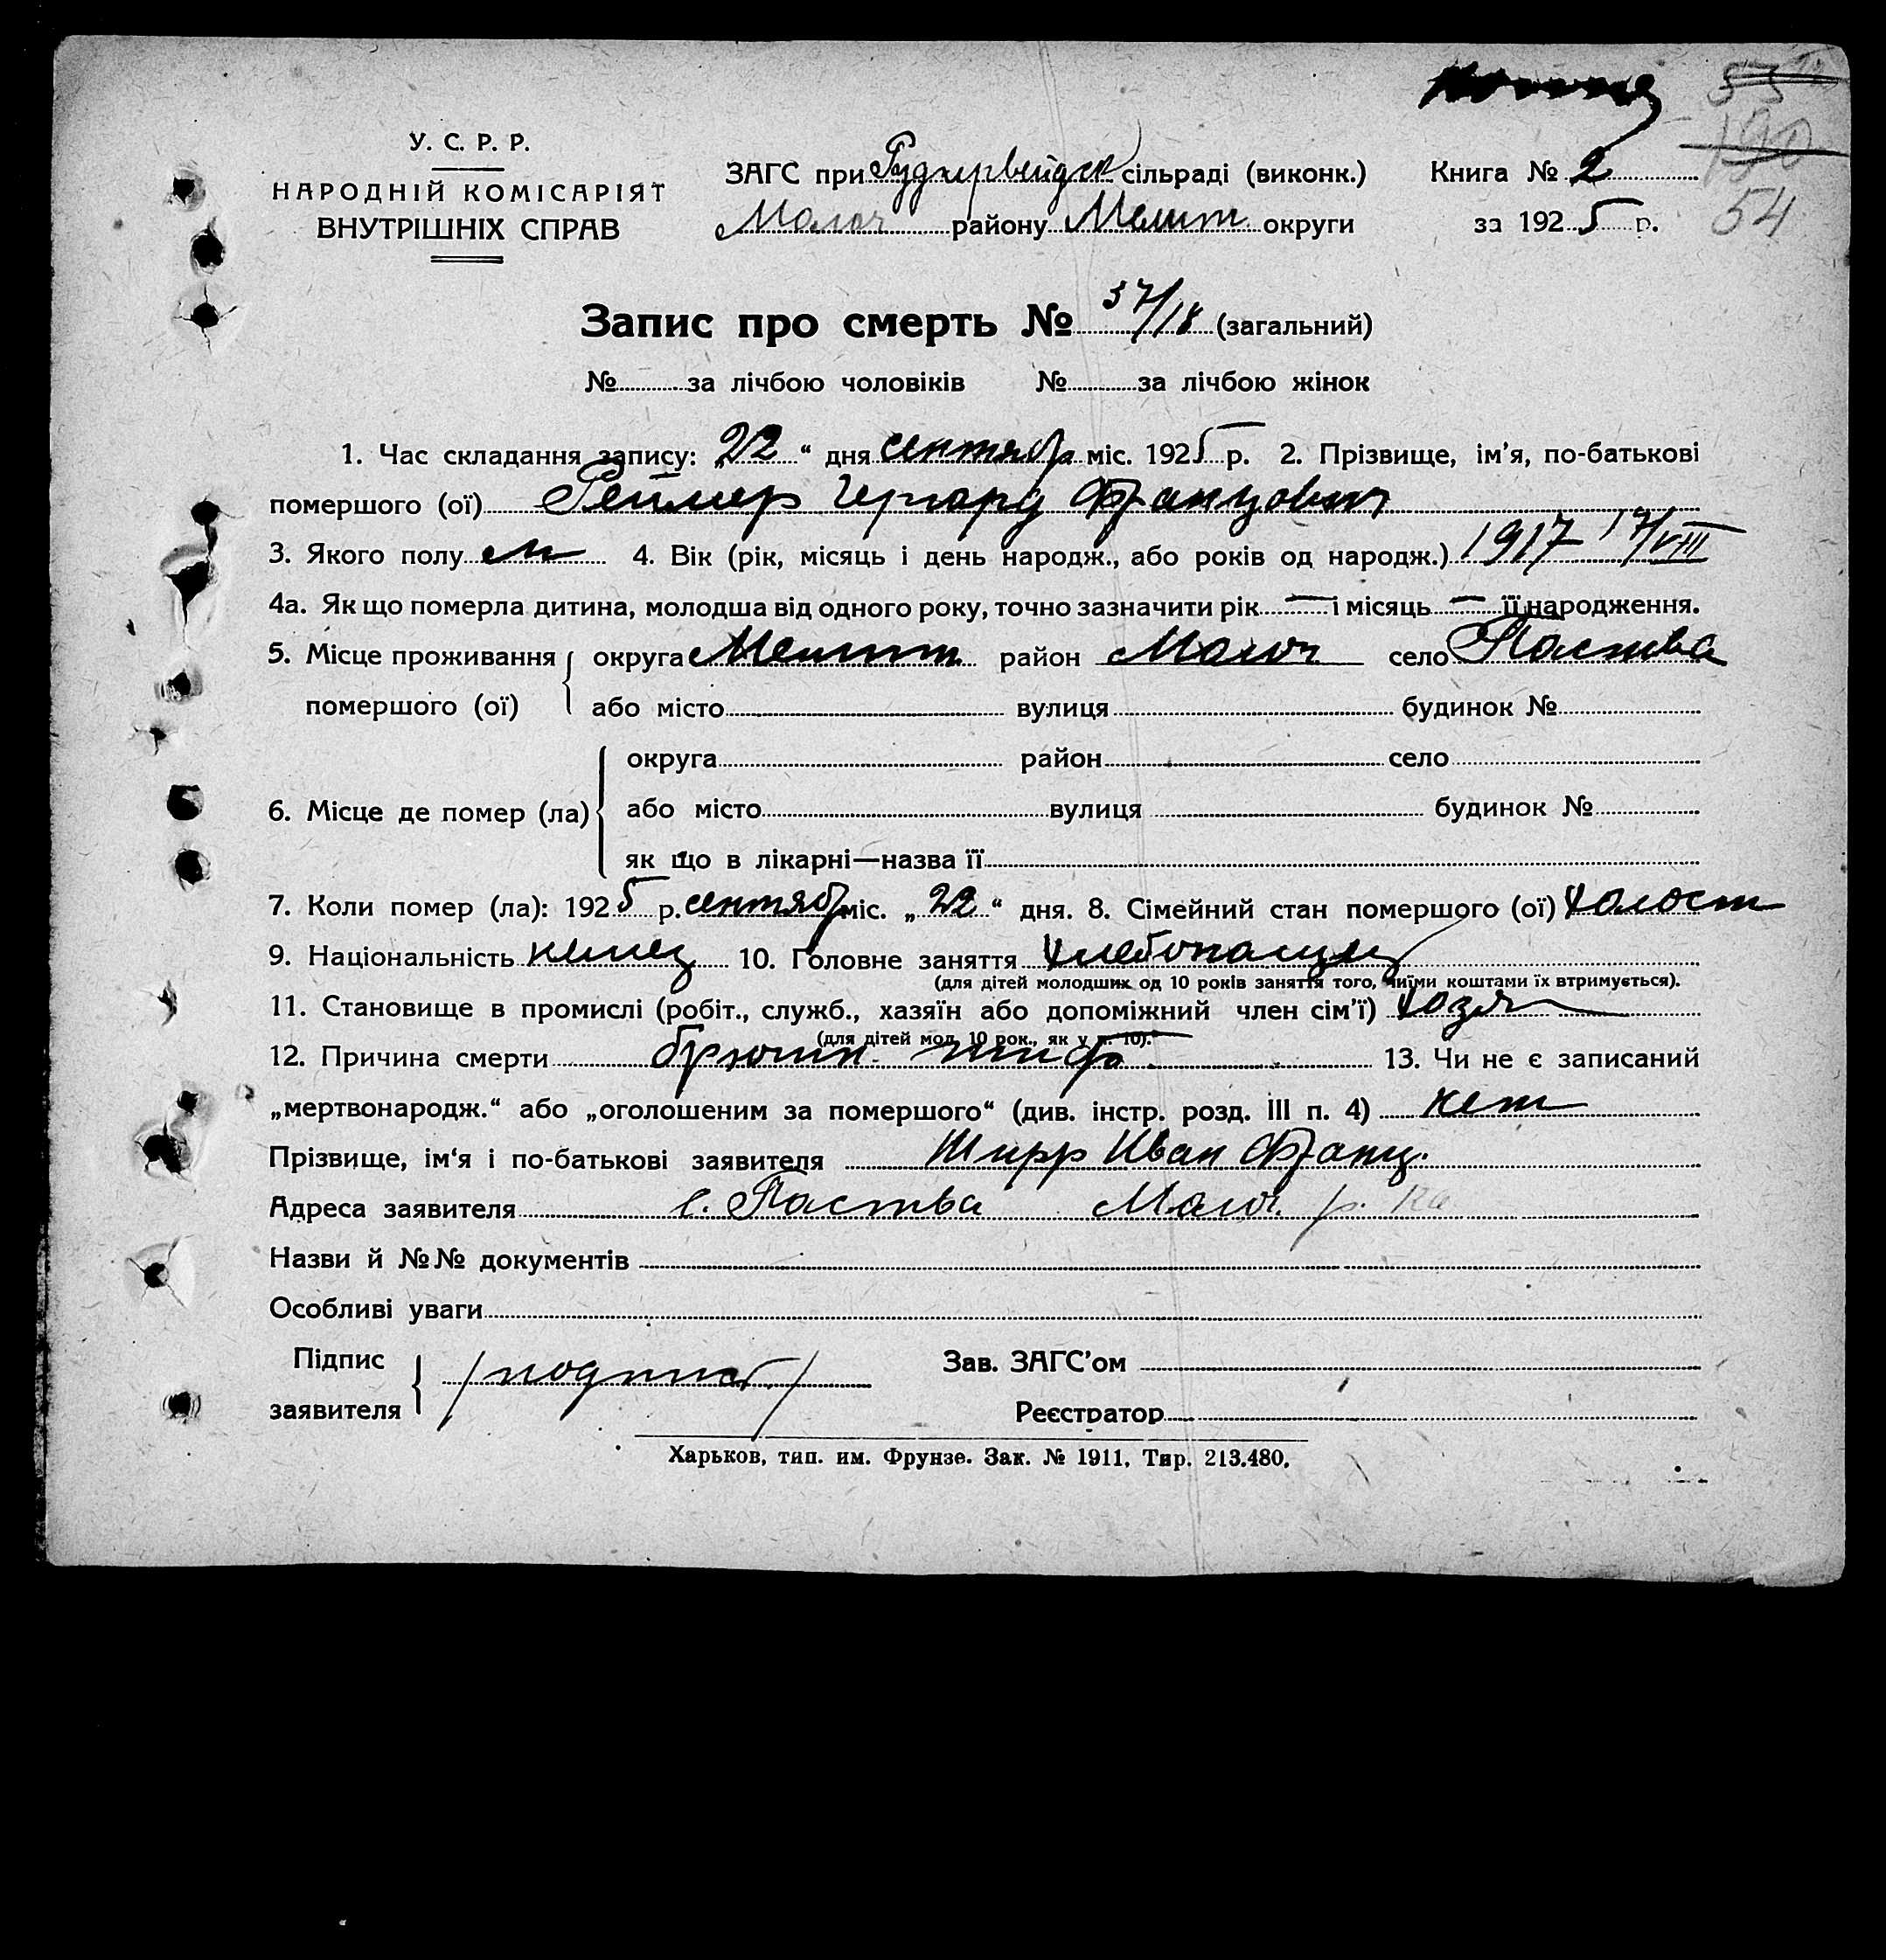 Копия
53
190
54
У. С. Р. Р.
НАРОДНІЙ КОМІСАРІЯТ
ВНУТРІШНІХ СПРАВ
ЗАГС при Руднервейдск сільраді (виконк.)
Молоч району Мелит округи
Книга № 2
за 1925 р.
Запис про смерть № 37/18 (загальний)
№ за лічбою чоловіків № за лічбою жінок
1. Час складання запису: „22“ дня сентября міс. 1925 р. 2. Прізвище, ім’я, по-батькові
помершого (ої) Реймер Гергард Францович
3. Якого полу м 4. Вік (рік, місяць і день народж., або років од народж.) 1917 17/VIII
4а. Як що померла дитина, молодша від одного року, точно зазначити рік — і місяць — її народження.
5. Місце проживання округа Мелит район Молоч село Паства
помершого (ої) або місто вулиця будинок №
округа район село
6. Місце де помер (ла) або місто вулиця будинок №
як що в лікарні—назва її
7. Коли помер (ла): 1925 р. сентябр міс. „22“ дня. 8. Сімейний стан помершого (ої) холост
9. Національність немец 10. Головне заняття хлебопашец
(для дітей молодших од 10 років заняття того, чиїми коштами їх втримується).
11. Становище в промислі (робіт., служб., хазяїн або допоміжний член сім’ї) хозя
(для дітей мол. 10 рок., як у п. 10).
12. Причина смерти брюшн. тиф 13. Чи не є записаний
„мертвонародж.“ або „оголошеним за помершого“ (див. інстр. розд. III п. 4) нет
Прізвище, ім‘я і по-батькові заявителя Ширр Иван Франц.
Адреса заявителя с. Паства Молоч. р.
Назви й №№ документів
Особливі уваги
Підпис
заявителя /подпись/
Зав. ЗАГС’ом
Реєстратор
Харьков, тип. им. Фрунзе. Зак. № 1911, Тир. 213.480.